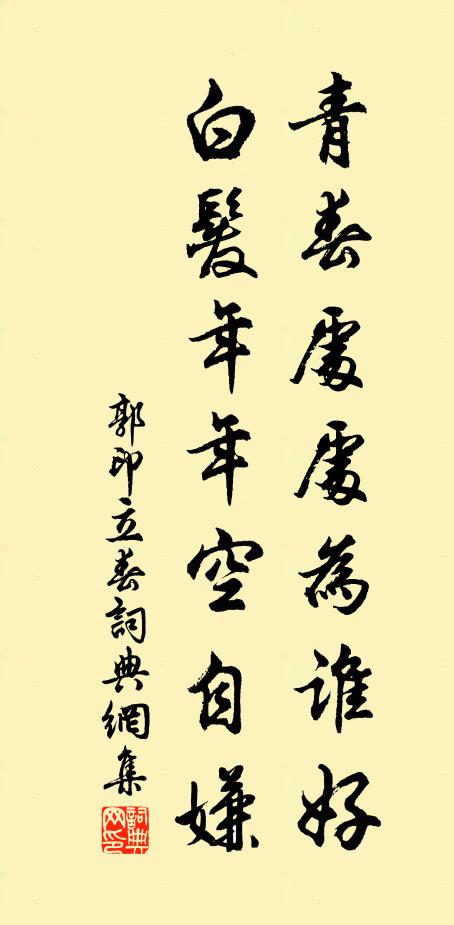 青春處處為誰好
白髮年年空自嫌
郭印立春詞典網集
詞典網印